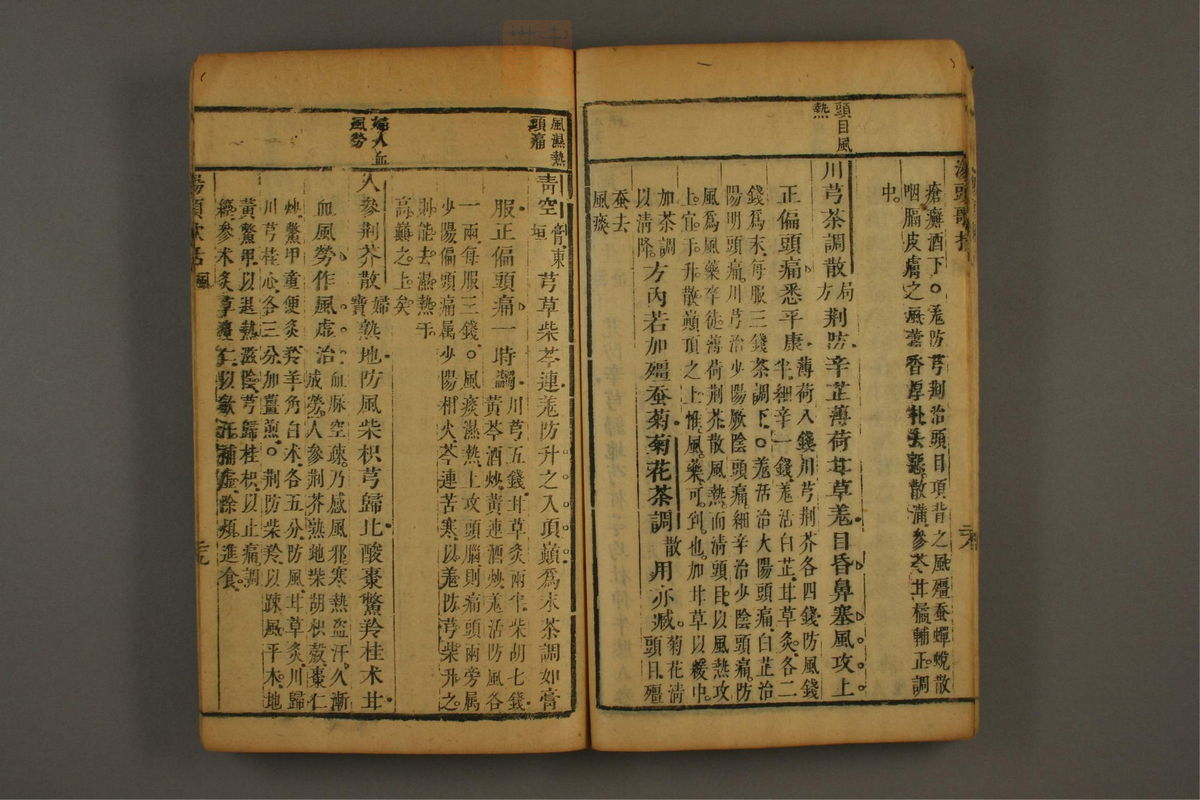 湯頭歌括
瘡癬酒下。羗防芎荆治頭目項背之風殭蚕蟬蛻散
咽膈皮膚之風藿香厚朴去惡散滿參苓甘橘輔正調
中。
頭目風
熱
川芎茶調散局方荆防辛芷薄荷甘草羗目昏鼻塞風攻上
正偏頭痛悉平康薄荷八錢川芎荆芥各四錢防風錢
半細辛一錢羗活白芷甘草炙各二
錢為末每服三錢茶調下。羗活治太陽頭痛白芷治
陽明頭痛川芎治少陽厥陰頭痛細辛治少陰頭痛防
風為風藥卒徒薄荷荆芥散風熱而清頭目以風熱攻
上宜乎升散巔頂之上惟風藥可到也加甘草以緩中
加茶調
以清降。方內若加殭蚕菊菊花茶調散用亦臧菊花清
頭目殭
蚕去
風痰
二十八
風濕熱
頭痛
青空膏東垣芎草柴芩連羗防升之入頂巔為末茶調如膏
服正偏頭痛一時蠲川芎五錢甘草炙兩半柴胡七錢
黃芩酒炒黃連酒炒羗活防風各
一兩每服三錢。風痰濕熱上攻頭腦則痛頭兩旁属
少陽偏頭痛属少陽相火芩連苦寒以羗防芎柴升之
則能去濕熱于
高巔之上矣
婦人血
風勞
人參荆芥散婦寶熟地防風柴枳芎歸比酸棗鱉羚桂朮甘
血風勞作風虛治血脉空疎乃感風邪寒熱盗汗久漸
成勞。人參荆芥熟地柴胡枳殼棗仁
炒鱉甲童便炙羚羊角白朮各五分防風甘草炙川歸
川芎桂心各三分加薑煎。荆防柴羚以踈風平木地
黃鱉甲以退熱滋陰芎歸桂枳以止痛調
經參朮炙草棗仁以歛汗補虛除煩進食。
湯頭歌括
二十九